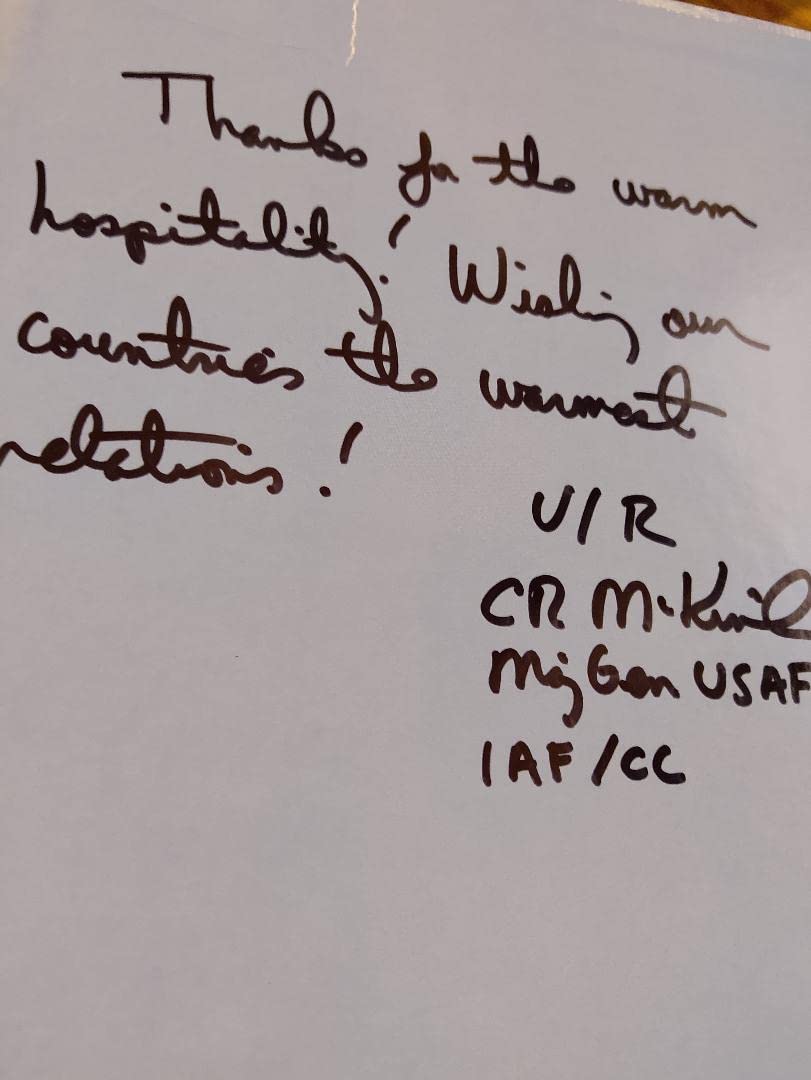 Thanks for the warm
hospitality! Wishing our
countries the warmest
relations!
V/R
CR
Maj Gen USAF
1 AF/CC